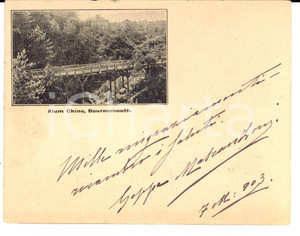 Alum Chine, Bournemouth.
Mille ringraziamenti -
ricambio i saluti.
Geppe
7 Ott. 903.